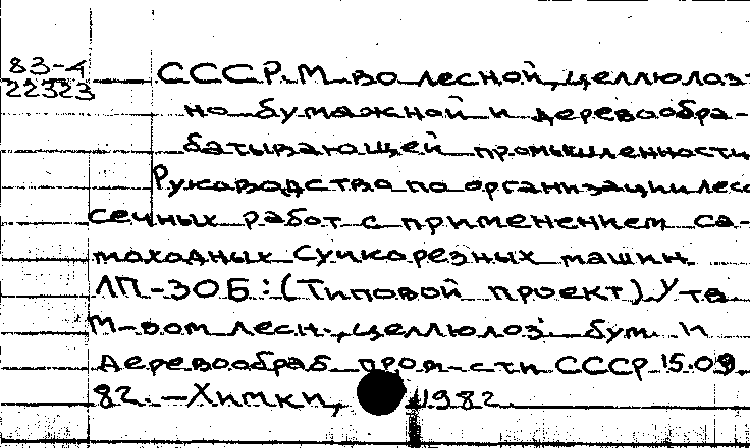 83-4
22323
СССР. М-во лесной, целлюлоз-
но бумажной и деревообра-
батывающей промышленности
Руководство по организации лесо
сечных работ с применением са-
моходных сучкорезных машин
ЛП-30Б: (Типовой проект) Утв
М-вом лесн., целлюлоз. бум. и
деревообраб. пром-сти СССР 15.09.
82. -Химки, 1982.